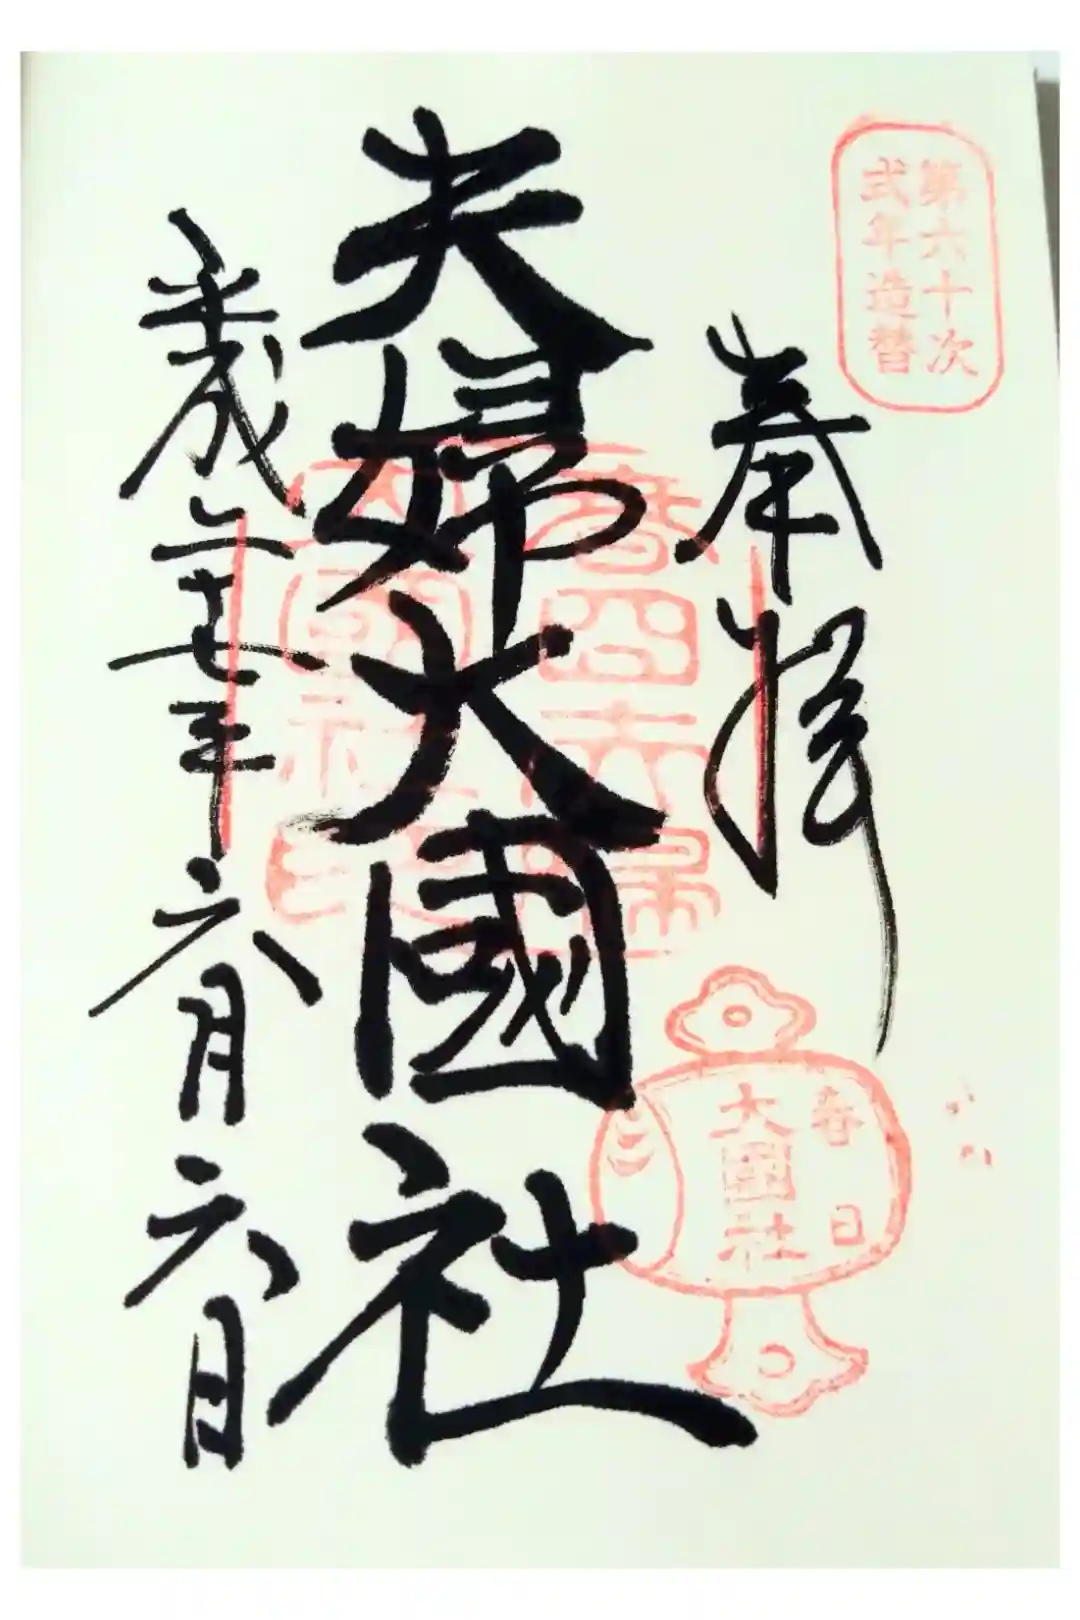 第六十次
式年造替
奉拝
夫婦大國社
平成二十七年六月六日
春日
大國社